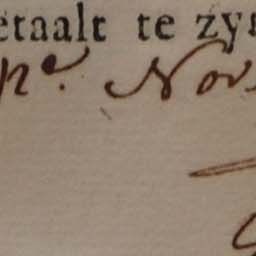 etaalt te zyn
pr. Nov